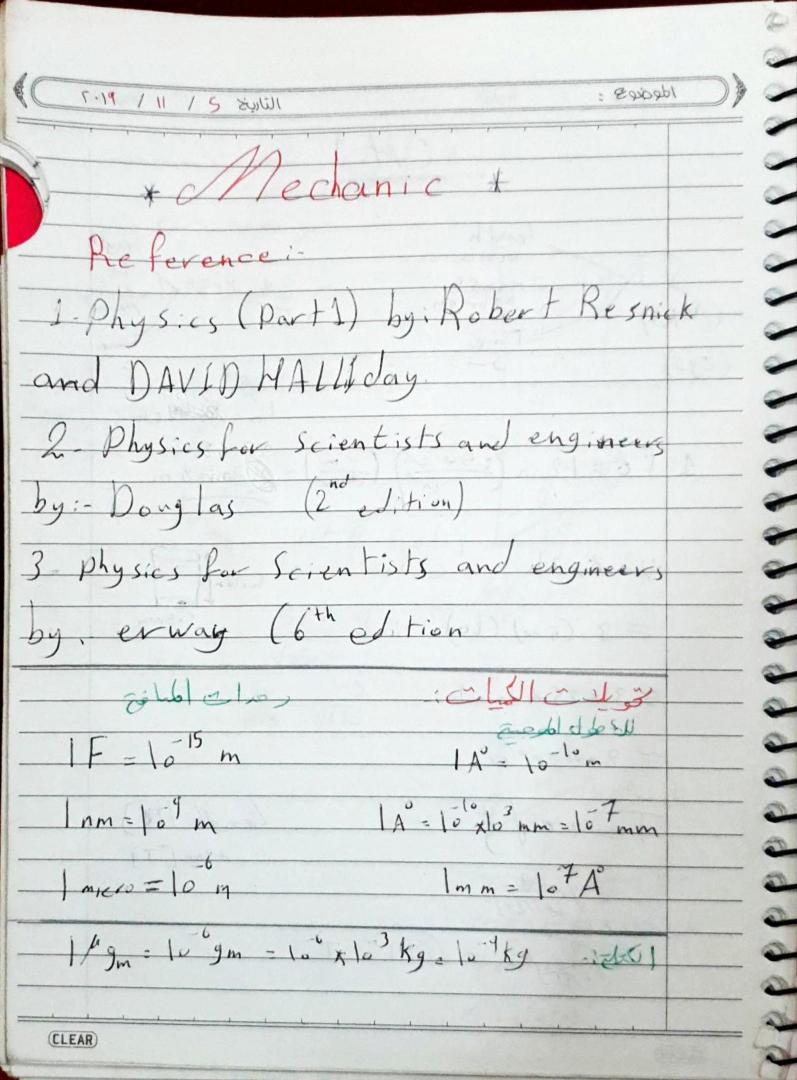 الموضوع : التاريخ ٥ / ١١ / ٢٠١٩
* Mechanic *
Reference :-
1- Physics (Part 1) by: Robert Resnick
and DAVID HALLiday
2- Physics for scientists and engineers
by:- Douglas (2nd edition)
3- physics for Scientists and engineers
by. erway (6th edition
تحويلات الكميات : وحدات المسافة
للأطوال الموجية
1 F = 10^-15 m 1 A° = 10^-10 m
1 nm = 10^-9 m 1 A° = 10^-10 x 10^3 mm = 10^-7 mm
1 micro = 10^-6 m 1 mm = 10^7 A°
الكتلة :- 1 μgm = 10^-6 gm = 10^-6 x 10^-3 kg = 10^-9 kg
CLEAR